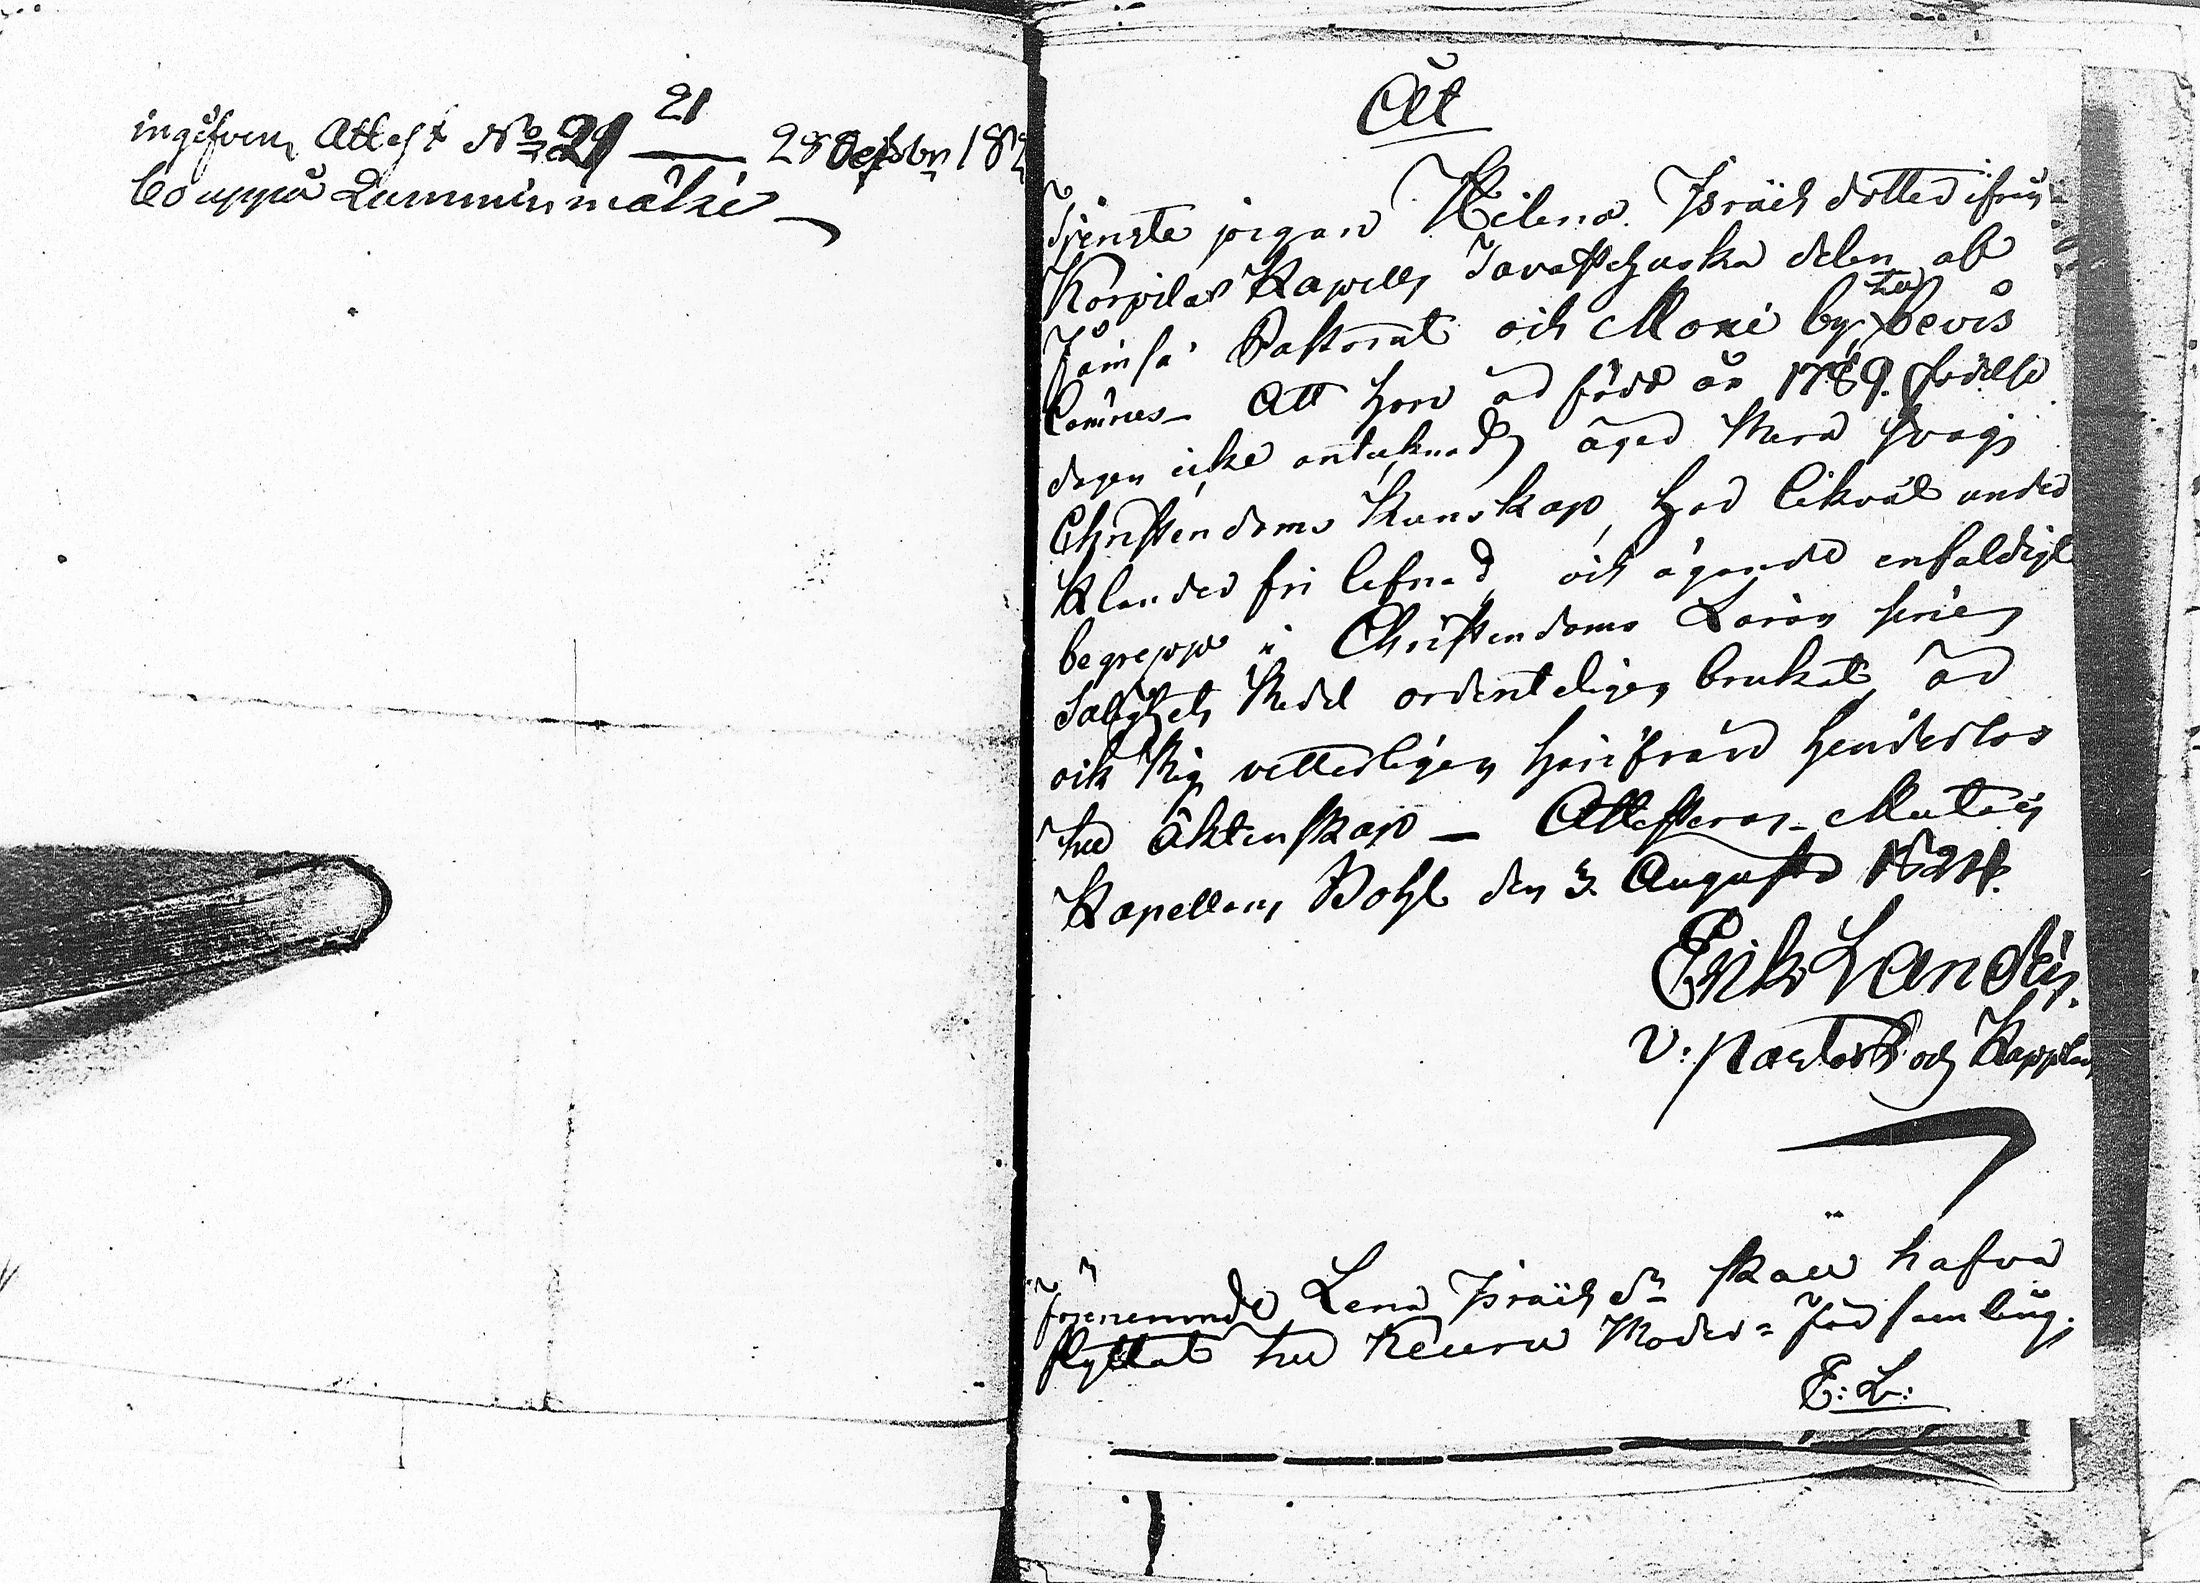 21
ingifven Attest No 21 — 28 Octobr 18
Co uppå Lumminmäki
Åt
Tjenste pigan Helena Israels dotter ifrån
Korpilax Kapells Tavastehuska delen af
Jämsä Pastorat och Moxi by, till bevis
lemnes – Att Hon är född år 1789. födelse
dagen icke antecknad, äger Mera svag
Christendoms Kunskap, Har likväl under
Klander fri lefnad, och ägande enfaldigt
begrepp i Christendoms Läran sina
Salighets Medel ordenteligen brukat, är
ock Mig vetterligen härifrån hinderlös
till Äktenskap — Attesteras Muurame
Kapellans Bohl den 3. Augusti 1824.
Erik Landen.
V: Pastor och Kapplan
Förenemnde Lena Israels dr skall hafva
flyttat till Keuru Moder = Församling.
E: L: